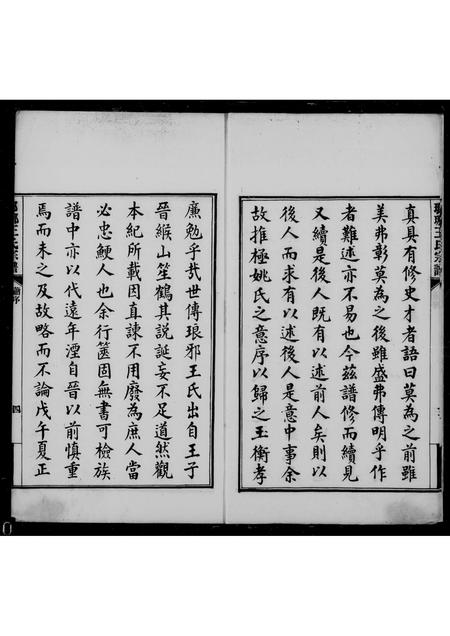 瑯琊王氏宗譜
真具有修史才者語曰莫為之前雖
美弗彰莫為之後雖盛弗傳明乎作
者難述亦不易也今茲譜修而續見
又續是後人既有以述前人矣則以
後人而求有以述後人是意中事余
故推極姚氏之意序以歸之玉衡孝
廉勉乎哉世傳琅邪王氏出自王子
晉緱山笙鶴其說誕妄不足道然觀
本紀所載因直諫不用廢為庶人當
必忠鯁人也余行篋固無書可檢族
譜中亦以代遠年湮自晉以前慎重
焉而未之及故略而不論戊午夏正
王氏宗譜
序
四